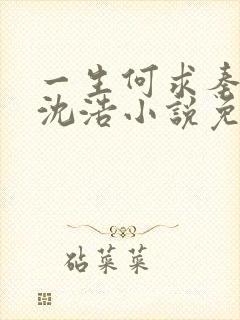 一生何求秦
沈浩小說免
砧菜菜